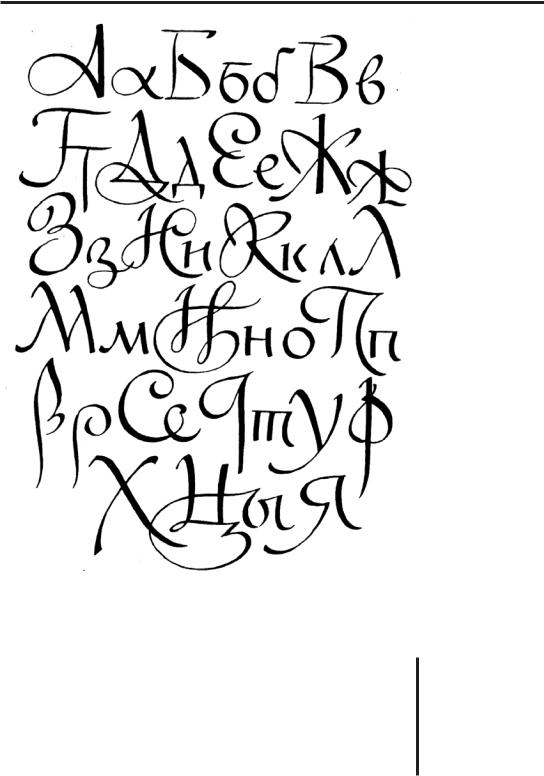 АаБббВв
ГтДдЕеЖж
ЗзИиКклЛ
МмНноПп
РрСсЧтУф
ХЦыЯ